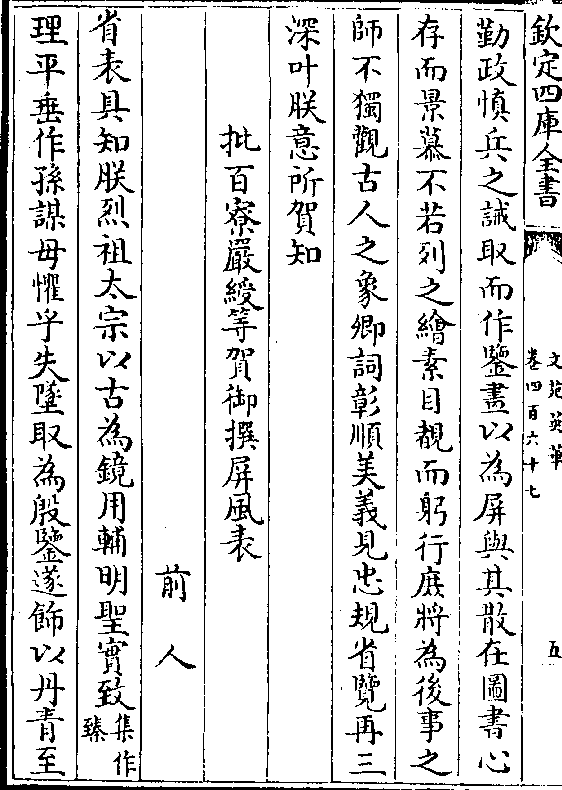 欽定四庫全書
文苑英華
卷四百六十七
五
勤政慎兵之誡取而作鑒畫以為屏與其散在圖書心
存而景慕不若列之繪素目覩而躬行庶將為後事之
師不獨觀古人之象卿詞彰順美義見忠規省覽再三
深叶朕意所賀知
批百寮嚴綬等賀御撰屏風表
前人
省表具知朕烈祖太宗以古為鏡用輔明聖實致集作臻
理平垂作孫謀毋懼乎失墜取為殷鑒遂飾以丹青至